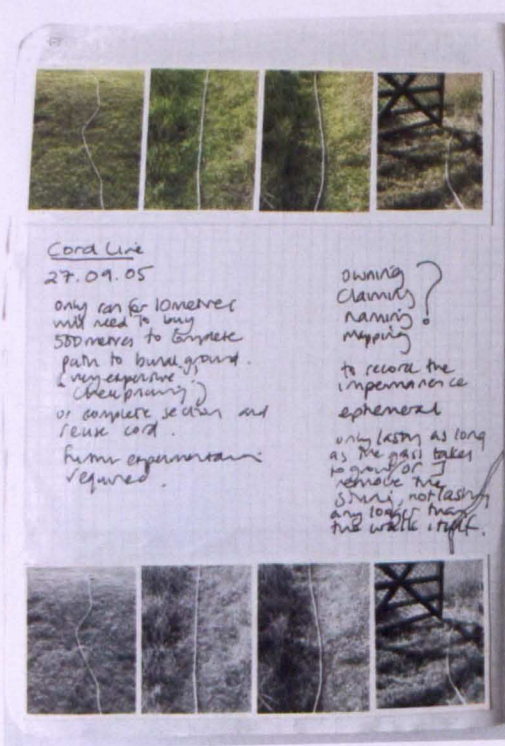 Cord Line
27.09.05
only ran for 10 metres
will need to buy
500 metres to complete
path to burial ground.
very expensive
check pricing
or complete section and
reuse cord.
further experimentation
required.
owning ?
claiming
naming
mapping
to record the
impermanence
ephemeral
only lasting as long
as the grass takes
to grow/or I
remove the
string, not lasting
any longer than
the walk itself.